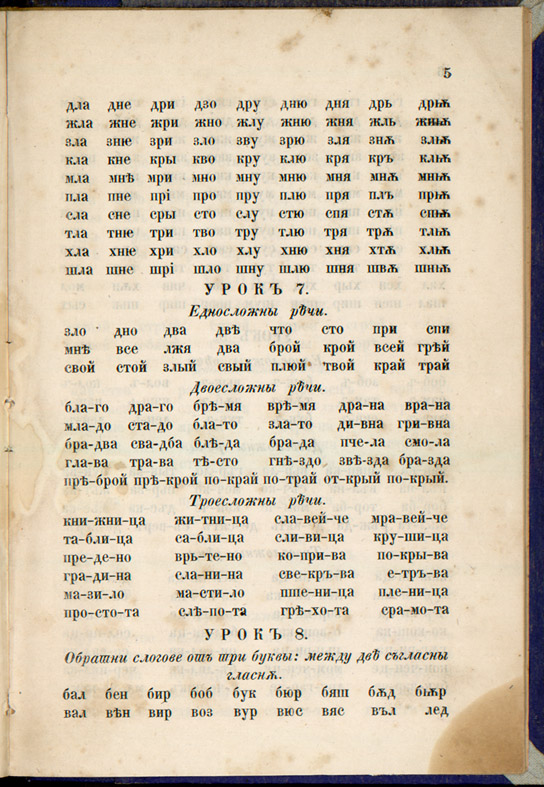 5
дла дне дри дзо дру дню дня дрь дрьѫ
жла жне жри жно жлу жню жня жль жньѫ
зла зню зри зло зву зрю зля знѫ зльѫ
кла кне кры кво кру клю кря кръ кльѫ
мла мнѣ мри мно мну мню мня мнѫ мньѫ
пла пне прі про пру плю пря плъ прьѫ
сла сне сры сто слу стю спя стѫ спьѫ
тла тню три тво тру тлю тря трѫ тльѫ
хла хню хри хло хлу хню хня хтѫ хльѫ
шла шне шрі шло шну шлю шня швѫ шньѫ
УРОКЪ 7.
Едносложны рѣчи.
зло дно два двѣ что сто при спи
мнѣ все лжя два брой крой всей грѣй
свой стой злый свый плюй твой край трай
Двоесложны рѣчи.
бла-го дра-го брѣ-мя врѣ-мя дра-на вра-на
мла-до ста-до бла-то зла-то ди-вна гри-вна
бра-два сва-дба блѣ-да бра-да пче-ла смо-ла
гла-ва тра-ва тѣ-сто гнѣ-здо звѣ-зда бра-зда
прѣ-брой прѣ-крой по-край по-трай от-крый по-крый.
Троесложны рѣчи.
кни-жни-ца жи-тни-ца сла-вей-че мра-вей-че
та-бли-ца са-бли-ца сли-ви-ца кру-ши-ца
пре-де-но врь-те-но ко-при-ва по-кры-ва
гра-ди-на сла-ни-на све-кръ-ва е-тръ-ва
ма-зи-ло ма-сти-ло пше-ни-ца пле-ни-ца
про-сто-та слѣ-по-та грѣ-хо-та сра-мо-та
УРОКЪ 8.
Обратни слогове отъ три буквы: между двѣ съгласны
гласнѫ.
бал бен бир боб бук бюр бяш бѫд бѭр
вал вѣн вир воз вур вюс вяс въл лед